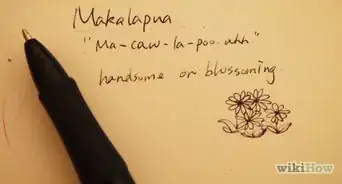 Makalapua
"Ma-caw-la-poo-ahh"
handsome or blossoming.
wikiHow